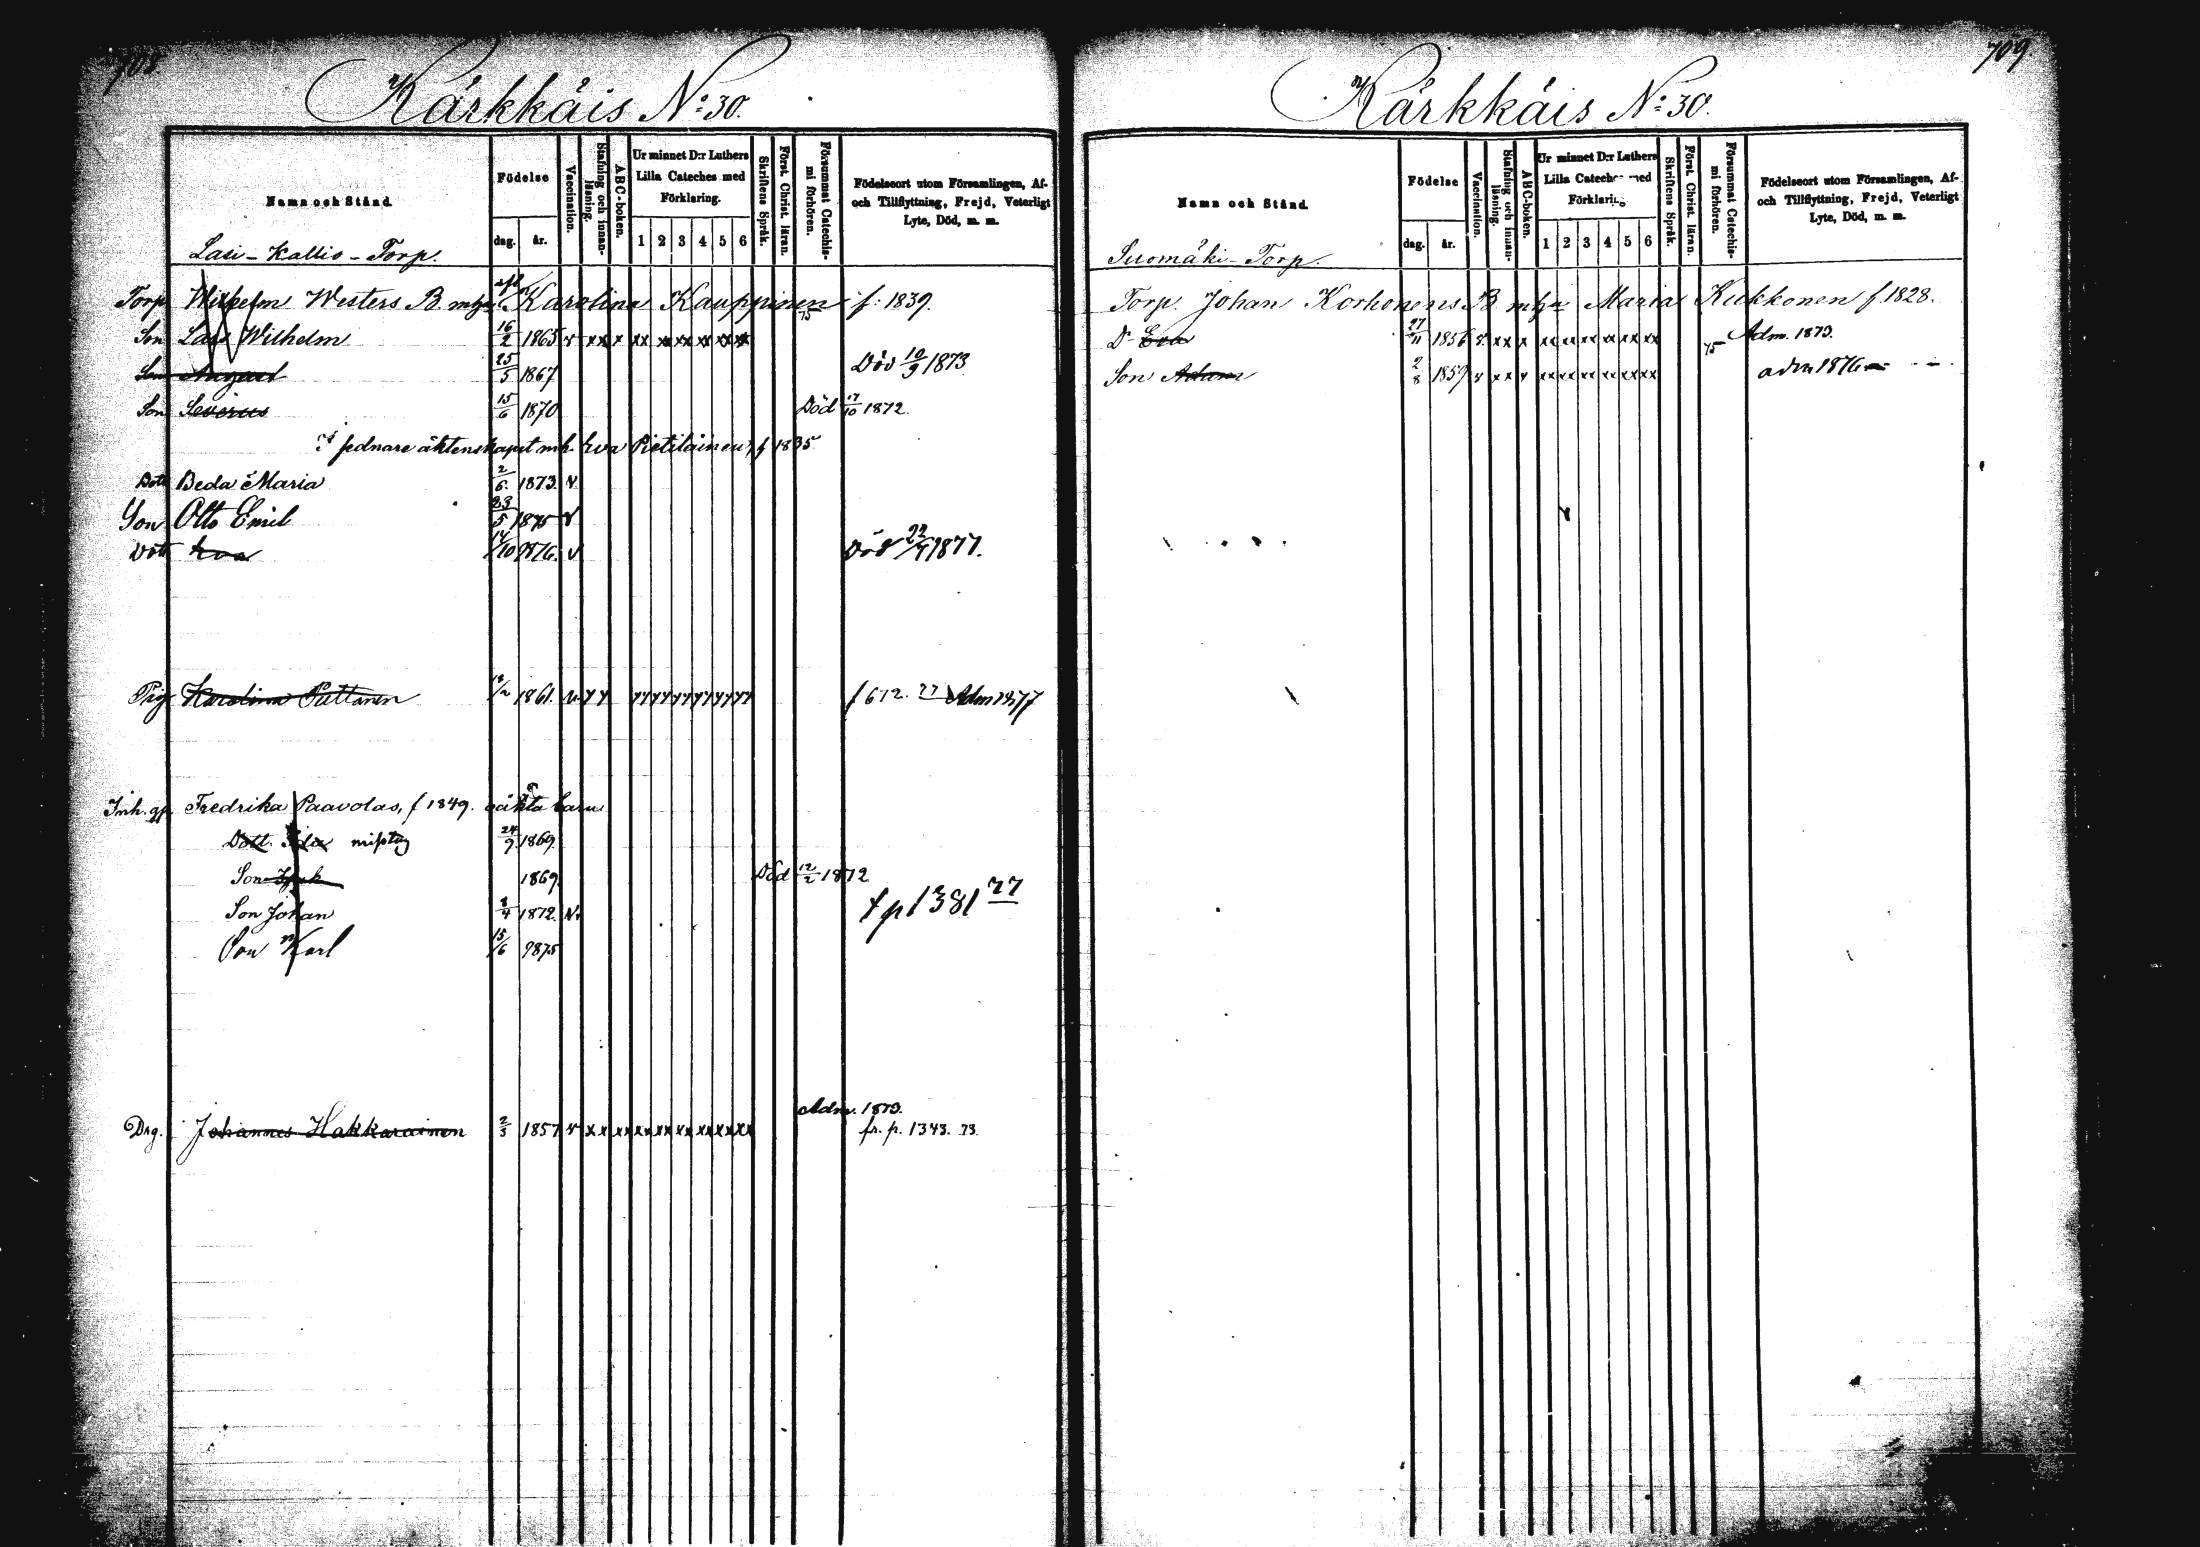 708.
Kärkkäis No: 30.
Namn och Stånd.
Födelse
dag. år.
Vaccination.
Stafning och innan-läsning.
ABC-boken.
Ur minnet D:r Luthers Lilla Cateches med Förklaring.
1 2 3 4 5 6
Skriftens Språk.
Först. Christ. läran.
Försummat Catechis-mi förhören.
Födelseort utom Församlingen, Af-
och Tillflyttning, Frejd, Veterligt
Lyte, Död, m. m.
Lasi-Kallio-Torp.
Torp. Wilhelm Westers B. mha Karolina Kauppinen f: 1839.
Son Lars Wilhelm 16/2 1865 v xx x xx xx xx xx xx xx 75
Son August 25/5 1867 Död 10/9 1873
Son Severus 15/6 1870 Död 17/10 1872.
I sednare äktenskapet mh. Eva Pietiläinen, f 1835
Dott Beda Maria 2/6 1873. v.
Son Otto Emil 23/5 1875 v
Dott Eva 14/10 1876. v Död 22/4 1877.
Pig. Karolina Puttonen 18/2 1861. v. f 672. 77 Adm 1877
Inh. qp. Fredrika Paavolas, f 1849. oäkta barn
Dott. Ida 24/9 1869.
Son Isak 1869. Död 12/2 1872
Son Johan 8/4 1872. v. t p 1381 77
Son Karl 15/6 1875
Adm. 1873.
Drg. Johannes Hakkarainen 2/3 1857 v xx xx xx xx xx xx xx xx fr. p. 1343. 73.
709.
Kärkkäis No: 30.
Namn och Stånd.
Födelse
dag. år.
Vaccination.
Stafning och innan-läsning.
ABC-boken.
Ur minnet D:r Luthers Lilla Cateches med Förklaring
1 2 3 4 5 6
Skriftens Språk.
Först. Christ. läran.
Försummat Catechis-mi förhören.
Födelseort utom Församlingen, Af-
och Tillflyttning, Frejd, Veterligt
Lyte, Död, m. m.
Suomäki-Torp.
Torp. Johan Korhonens B mha Maria Kukkonen f. 1828.
Dr Eva 27/11 1856 v. xx x xx xx xx xx xx xx Adm. 1873.
Son Adam 2/8 1859 v xx v xx xx xx xx xx xx 75 adm 1876